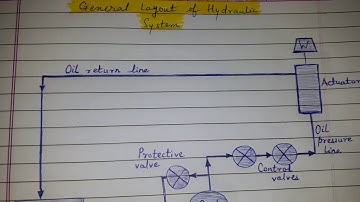 General Layout of Hydraulic
System
W
Oil return line
Actuator
Oil
Pressure
line
Protective
valve
Control
valves